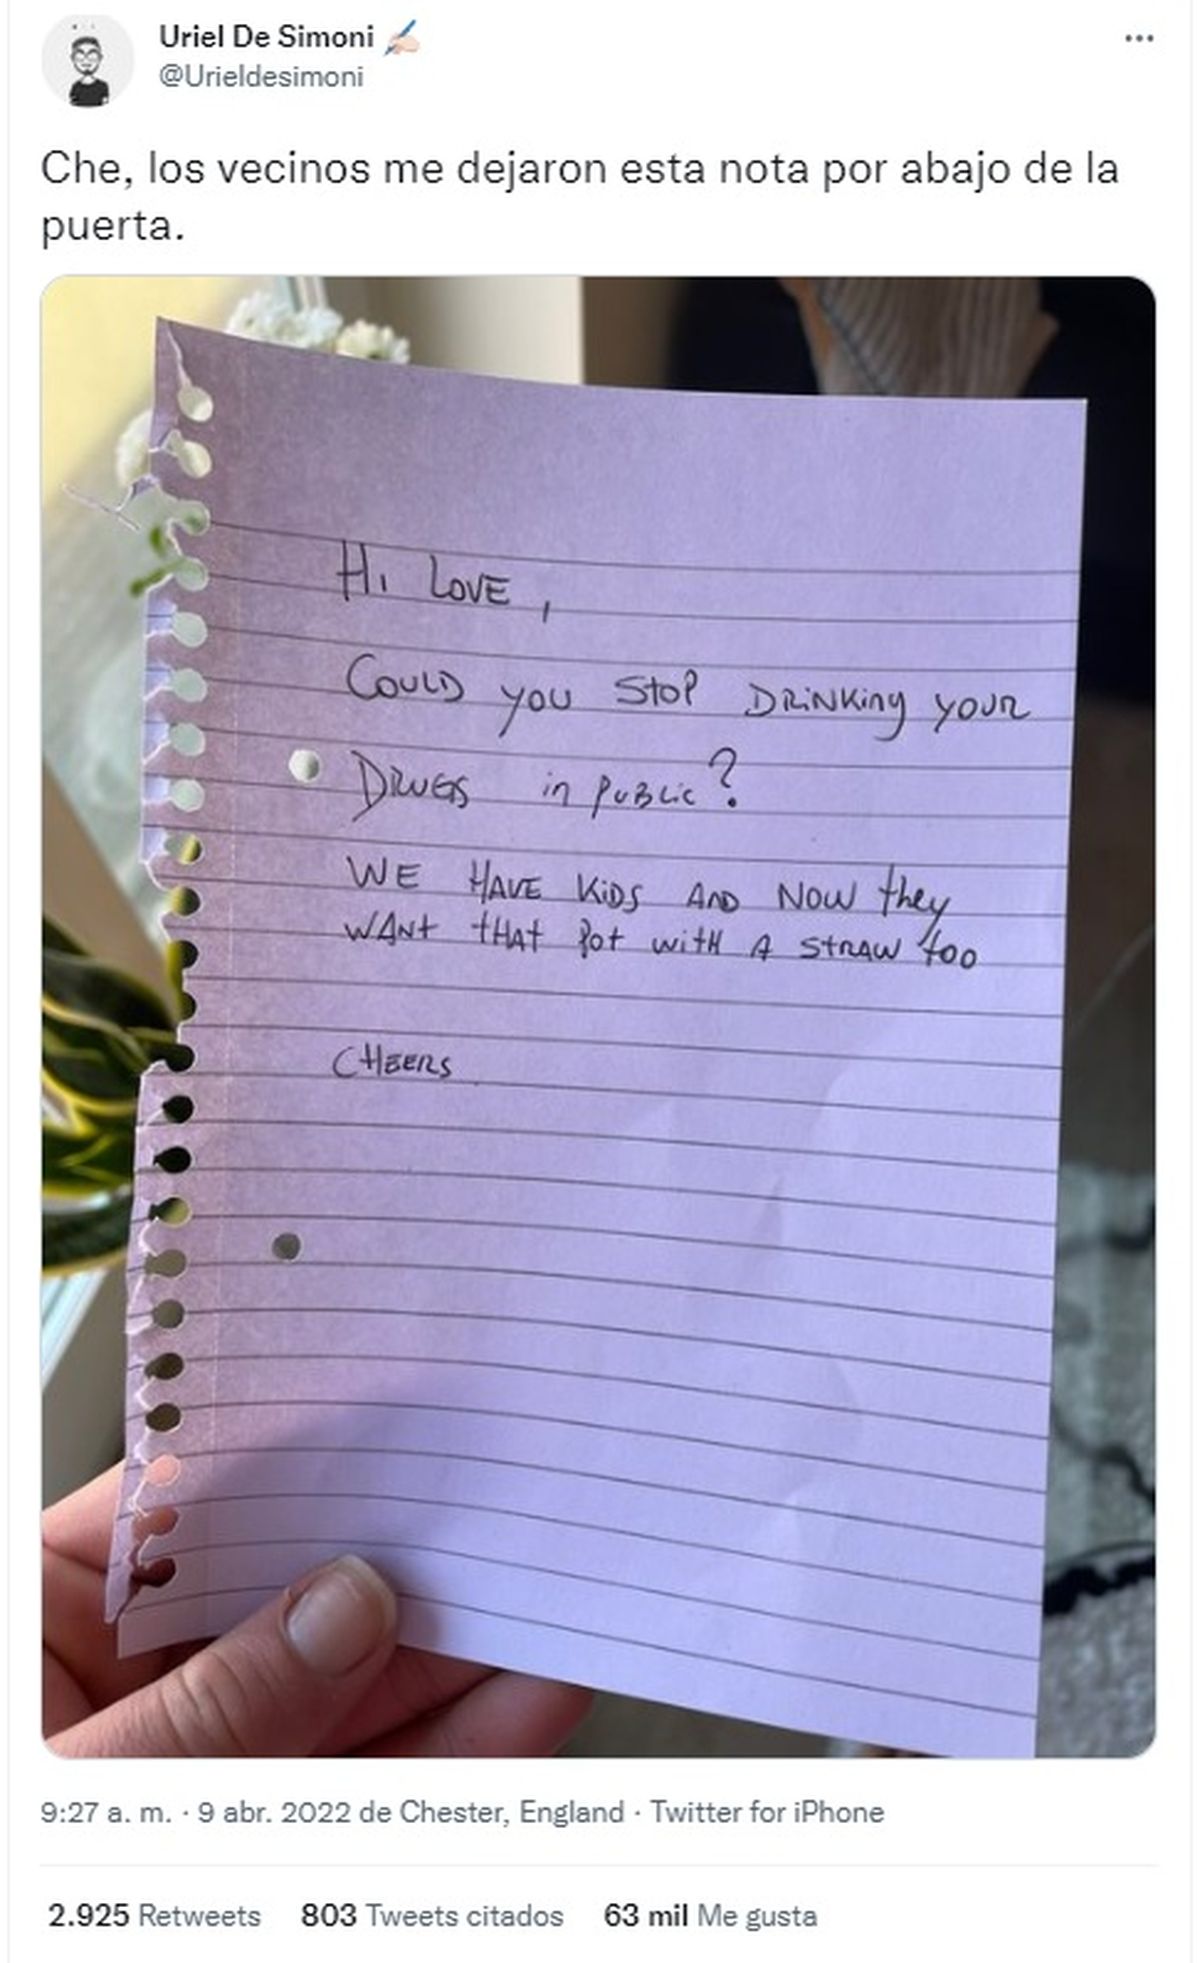 Uriel De Simoni ✍🏻
@Urieldesimoni
Che, los vecinos me dejaron esta nota por abajo de la
puerta.
HI LOVE,
COULD YOU STOP DRINKING YOUR
DRUGS in PUBLIC?
WE HAVE KIDS AND NOW they
WANT THAT POT WITH A STRAW TOO
CHEERS
9:27 a. m. · 9 abr. 2022 de Chester, England · Twitter for iPhone
2.925 Retweets 803 Tweets citados 63 mil Me gusta